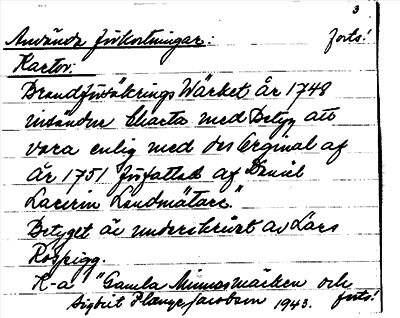 3
Använda förkortningar: forts!
Kartor:
Brandförsäkrings Wärket år 1748
insändne Charta med Betyg att
vara enlig med des Orginal af
år 1751 författad af Daniel
Landmätare."
Betyget är underskrivt av Lars
K-a "Gamla Minnesmärken och forts!
Sigurit Jacobson 1943.